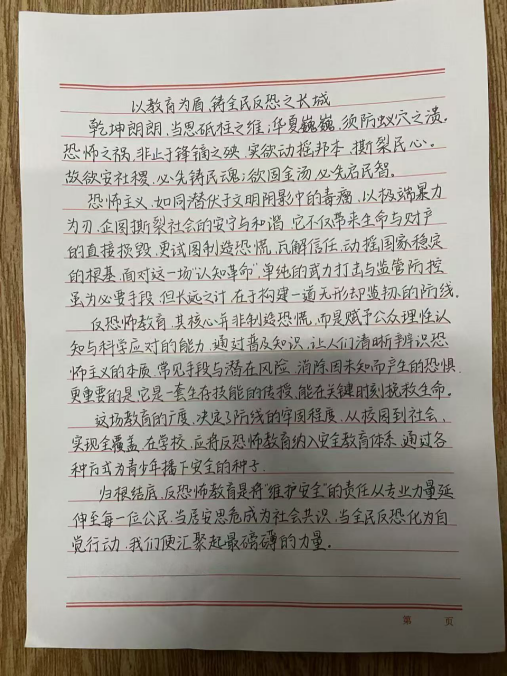 以教育为盾,铸全民反恐之长城
乾坤朗朗,当思砥柱之维;华夏巍巍,须防蚁穴之溃。
恐怖之祸,非止于锋镝之殃,实欲动摇邦本,撕裂民心。
故欲安社稷,必先铸民魂;欲固金汤,必先启民智。
恐怖主义,如同潜伏于文明阴影中的毒瘤,以极端暴力
为刃,企图撕裂社会的安宁与和谐。它不仅带来生命与财产
的直接损毁,更试图制造恐慌,瓦解信任,动摇国家稳定
的根基,面对这一场“认知革命”,单纯的武力打击与监管防控
虽为必要手段,但长远之计,在于构建一道无形却坚韧的防线。
反恐怖教育,其核心并非制造恐慌,而是赋予公众理性认
知与科学应对的能力,通过普及知识,让人们清晰辨识恐
怖主义的本质、常见手段与潜在风险,消除因未知而产生的恐惧,
更重要的是,它是一套生存技能的传授,能在关键时刻挽救生命。
这场教育的广度,决定了防线的牢固程度,从校园到社会,
实现全覆盖,在学校,应将反恐怖教育纳入安全教育体系,通过各
种方式为青少年播下安全的种子.
归根结底,反恐怖教育是将“维护安全”的责任从专业力量延
伸至每一位公民,当居安思危成为社会共识,当全民反恐化为自
觉行动,我们便汇聚起最磅礴的力量。
第 页